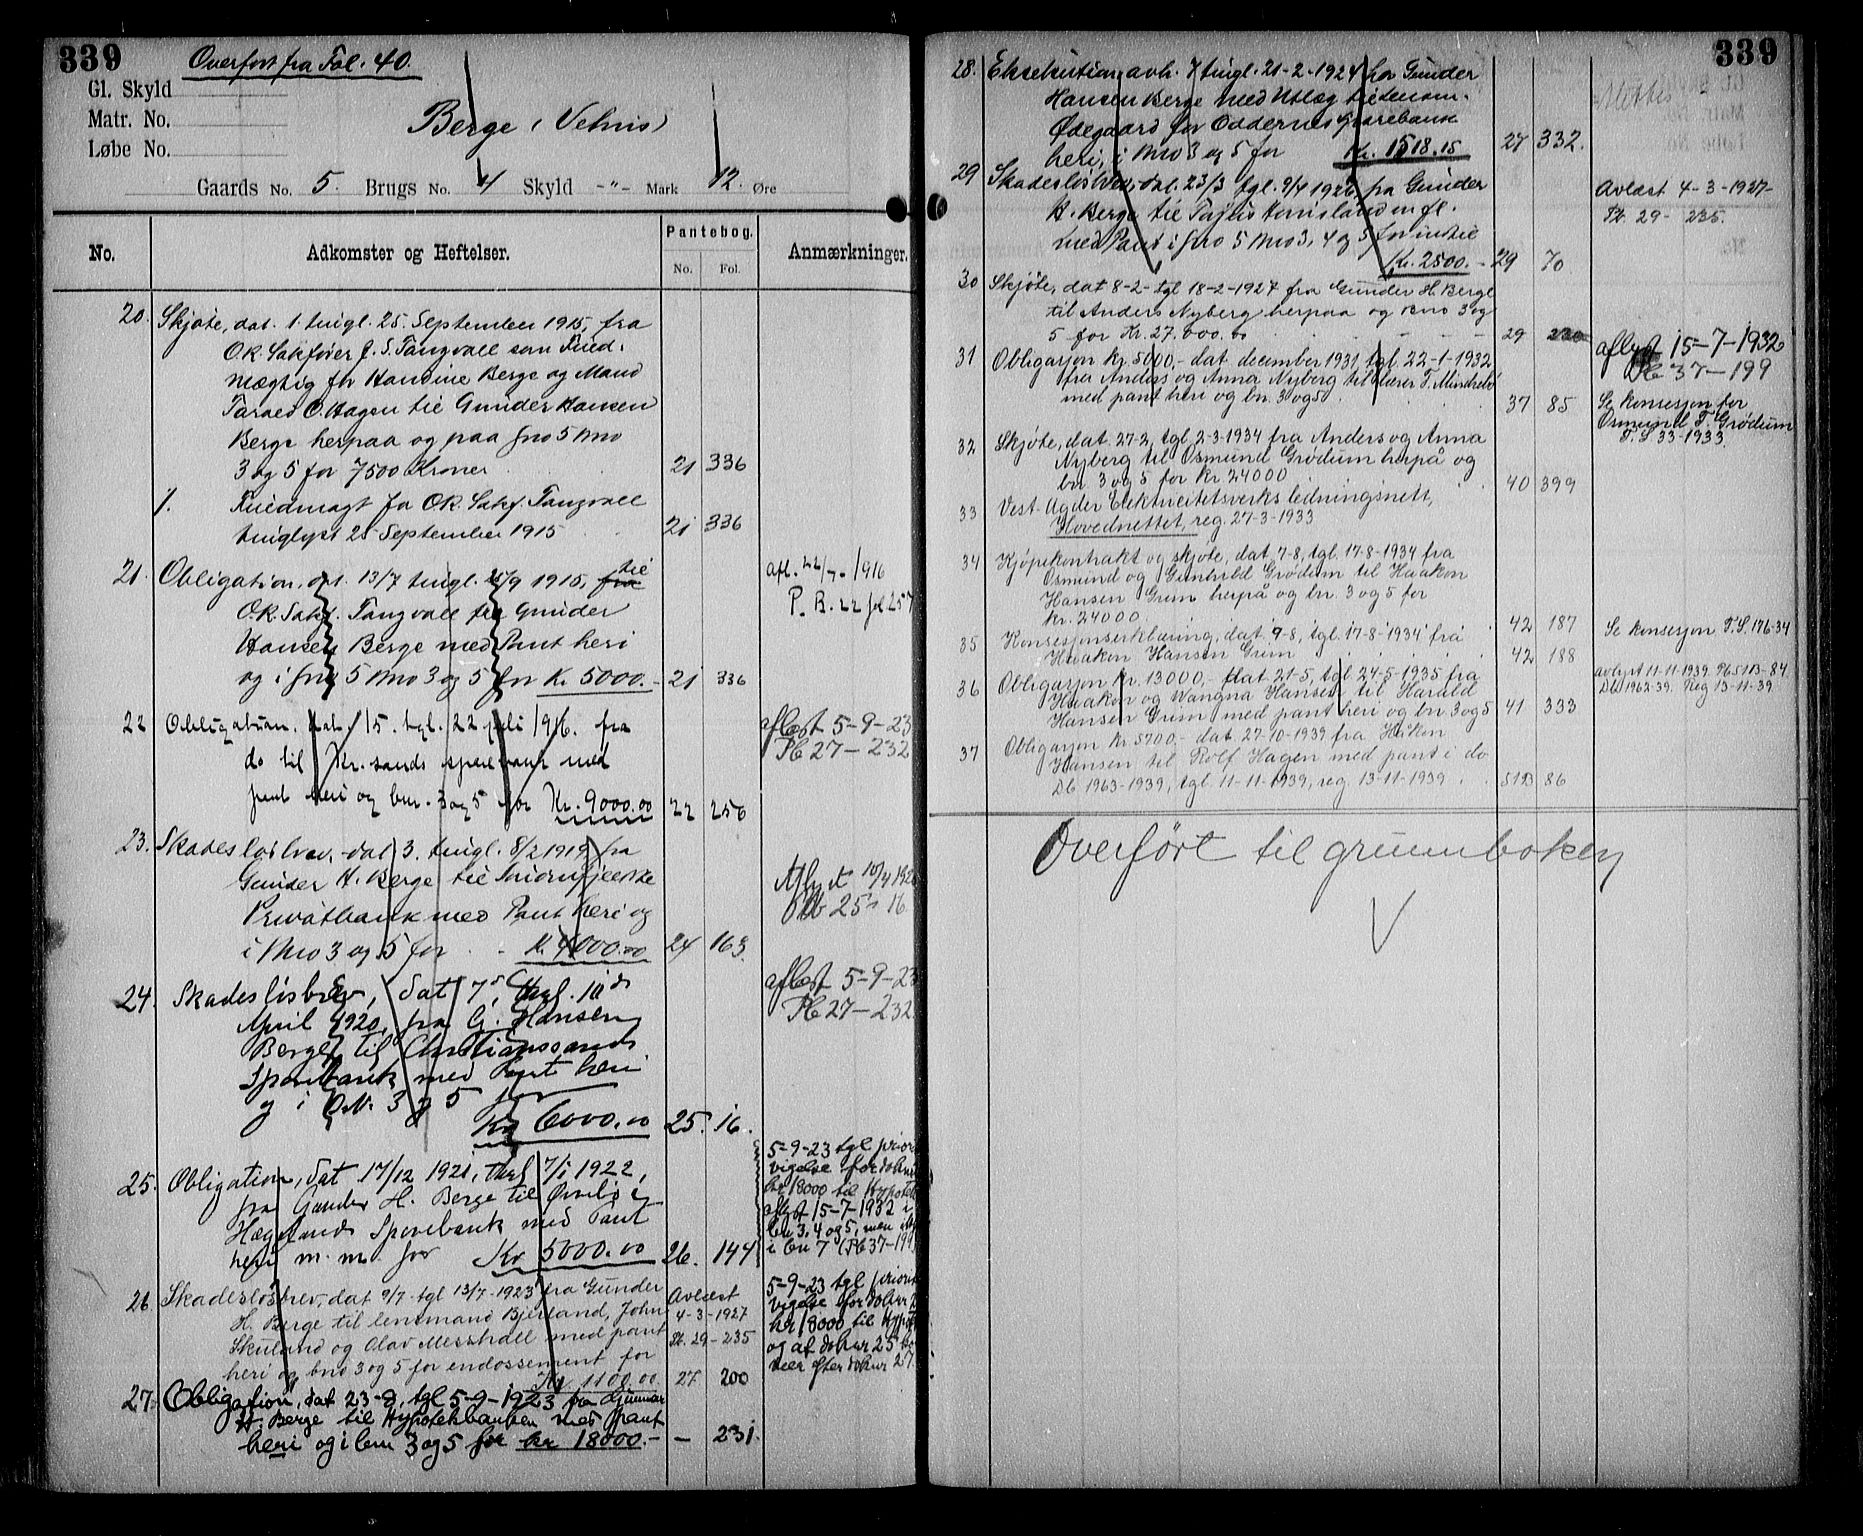 339
Overført fra Fol. 40.
Gl. Skyld
Matr. No.
Løbe No.
Berge (Vehus)
Gaards No. 5. Brugs No. 4 Skyld -"- Mark 12. Øre
No.
Adkomster og Heftelser.
Pantebog.
No. Fol.
Anmærkninger.
20. Skjøte, dat. 1. tingl. 25. September 1915, fra
O.R. Sakfører J. S. Tangvall som Fuld-
mægtig for Handine Berge og Mand
Tarald O. Hagen til Gunder Hansen
Berge herpaa og paa gno 5 bno
3 og 5 for 7500 Kroner 21 336
/. Fuldmagt fa O.R. Sakf. Tangvall
tinglyst 25 September 1915 21 336
21. Obligation, dat. 13/7 tingl. 25/9 1915, fra til
O.R. Sakf. Tangvall fra Gunder
Hansen Berge med Pant heri
og i gno 5 bno 3 og 5 for Kr. 5000.- 21 336
afl. 22/7 1916
P. B. 22 fol 257
22 Obligation, dat. 15. tgl. 22 juli 1916. fra
do til Kr.sands sparebank med
pant heri og bnr. 3 og 5 for Kr. 9000.00 22 256
aflæst 5-9-23
Pb 27-232
23. Skadesløsbrev, dat 3. tingl. 8/2 1919, fra
Gunder H. Berge til Sudenfjeldske
Privatbank med Pant heri og
i bno 3 og 5 for Kr. 4000.00 24 163.
Aflyst 10/4 1920
Pb 25 - 16.
24. Skadesløsbrev, dat 7de, thgl. 10de
April 1920, fra G. Hansen
Berge til Christianssands
Sparebank med Pant heri
og i B.N. 3 og 5 for
Kr 6000.00 25. 16.
aflæst 5-9-23
Pb 27-232
25. Obligation, dat 17/12 1921, thgl 7/1 1922,
fra Gunder H. Berge til Øvrebø og
Hægelands Sparebank med Pant
heri m. m. for Kr 5000.00 26. 144
5-9-23 tgl priori
vigelse for dok nr
kr 18000 til Hypotek
aflyst 15-7-1932 i
bn 3, 4 og 5, men ikke
i bn 7 (Pb 37-199
26. Skadesløsbrev, dat 9/7 - tgl 13/7-1923 fra Gunder
H. Berge til lensmand Bjerland, John
Skuland og Olav Messhall med pant
heri og bno 3 og 5 for endossement for
Kr 1100.00. 27 200
Avlæst
4-3-1927
Pb. 29-235
5-9-23 tgl priorit
vigelse for dok nr 2
kr 18000 til Hypot
og at dok nr 25
nær efter dok nr 27.
27. Obligation, dat 23-8, tgl 5-9-1923 fra Gunnar
H. Berge til Hypotekbanken med pant
heri og i bnr 3 og 5 for kr 18000.- - 231.
339
28. Eksekution avh. 7 tingl. 21-2-1924 hos Gunder
Hansen Berge med Utlæg til
Ødegaard for Oddernes Sparebank
heri, i bno 3 og 5 for Kr. 1518.15 27 332.
29 Skadesløsbrev, dat. 23/3 tgl. 9/4 1926 fra Gunder
H. Berge til Tarjus Homsland m fl.
med Pant i gno 5 bno 3, 4 og 5 for indtil
Kr. 2500.- 29 70
Avlæst 4-3-1927-
Pb. 29- 235.
30 Skjøte, dat 8-2- tgl 18-2-1927 fra Gunder H. Berge
til Anders Nyberg herpaa og bno 3 og
5 for Kr. 27.000.00 29 230
31 Obligasjon kr. 5000,- dat. december 1931 tgl. 22-1-1932
fra Anders og Anna Nyberg til lærer T. Mindrebø
med pant heri og bn. 3 og 5 37 85
aflyst 15-7-1932
Pb 37-199
Se konsesjon for
Osmund T. Grødum
T. S. 33-1933.
32 Skjøte, dat. 27-2, tgl. 2-3-1934 fra Anders og Anna
Nyberg til Osmund Grødum herpå og
bn. 3 og 5 for kr 24000 40 399
33 Vest-Agder Elektricitetsverks ledningsnett,
Hovednettet, reg. 27-3-1933
34 Kjøpekontrakt og skjøte, dat. 7-8, tgl. 17-8-1934 fra
Osmund og Gunhild Grødum til Haakon
Hansen Grim herpå og bn. 3 og 5 for
kr. 24000. 42 187
Se konsesjon T. S. 176-34
35 Konsesjonserklæring, dat. 9-8, tgl. 17-8-1934 fra
Haakon Hansen Grim 42 188
36 Obligasjon kr. 13000,- dat. 21-5, tgl 24-5-1935 fra
Haakon og Wangna Hansen til Harald
Hansen Grim med pant heri og bn 3 og 5 41 333
avlyst 11-11-1939. Pb 51B-84
Db 1962-39. Reg 13-11-39.
37 Obligasjon kr 5700,- dat. 27-10-1939 fra Håkon
Hansen til Rolf Hagen med pant i do
Db 1963-1939, tgl. 11-11-1939, reg. 13-11-1939 51B 86
Overført til grunnboken